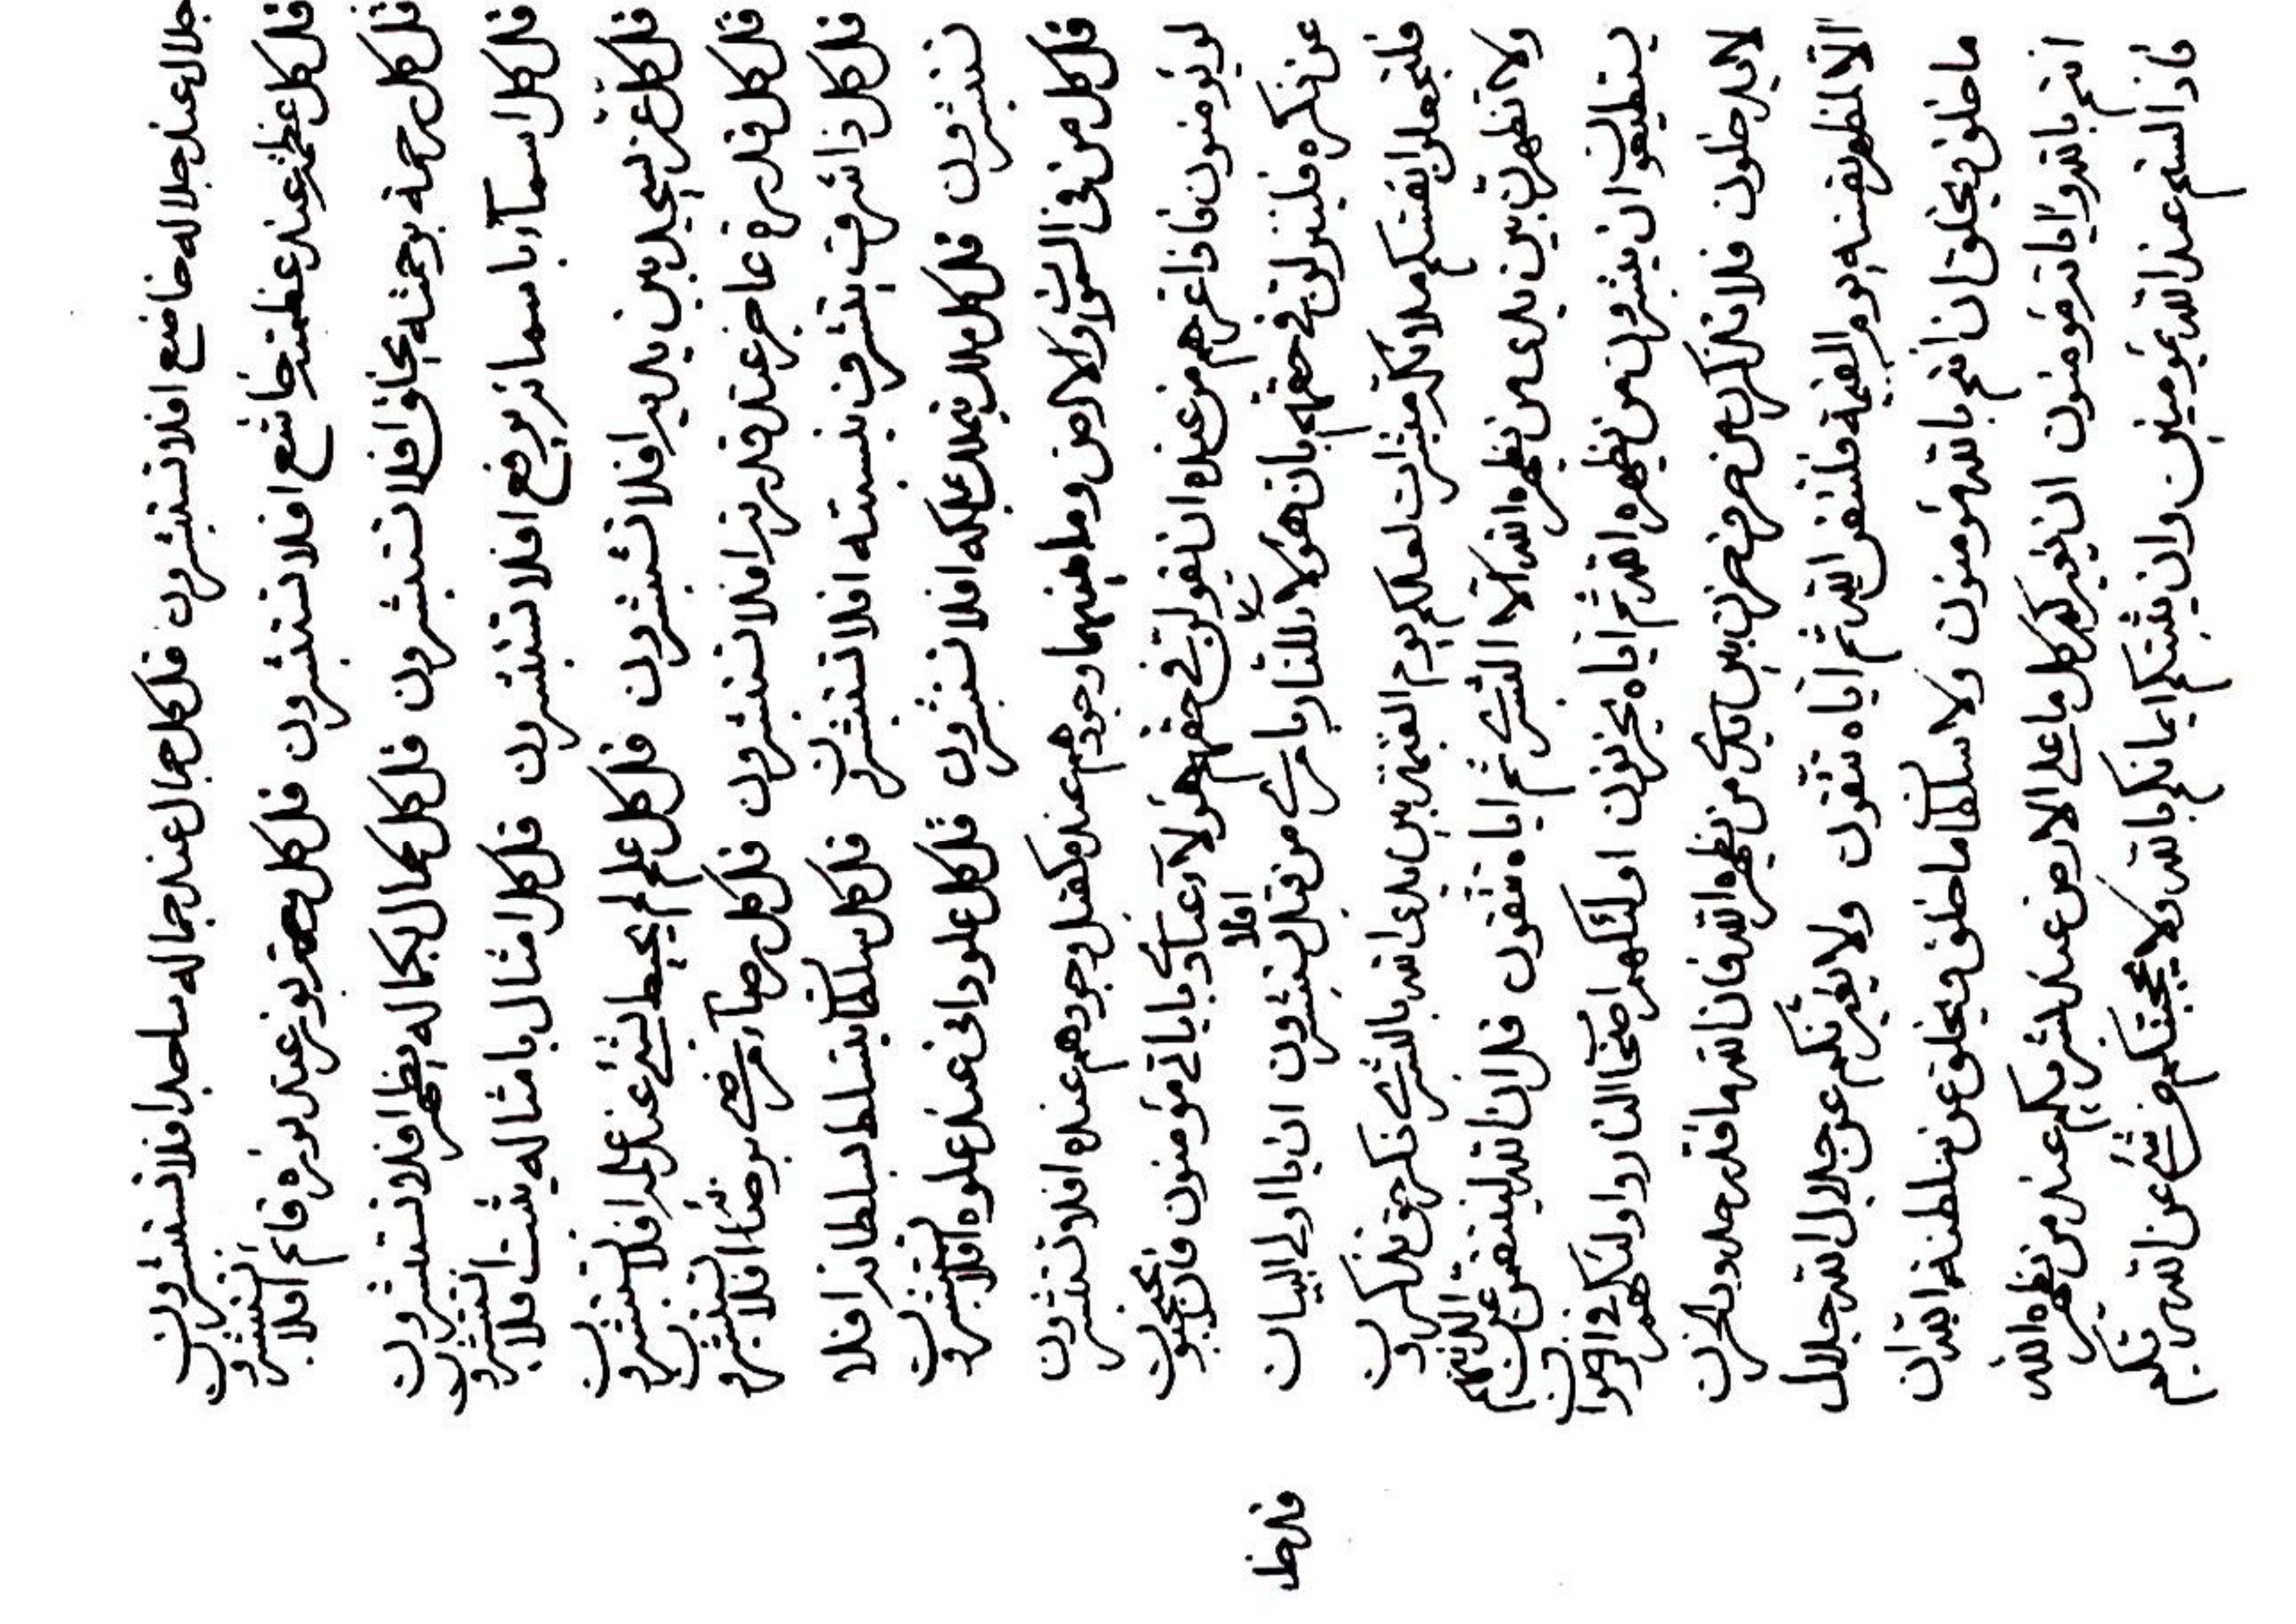 جلال عند جلاله خاضع افلا تستبشرون قل كل جمال عند جماله ساجد افلا تستبشرون
قل كل عظمة عند عظمته خاشع افلا تستبشرون قل كل نور عند نوره قائم افلا تستبشرون
قل كل رحمة برحمته يخلق افلا تستبشرون قل كل كمال بكماله يظهر افلا تستبشرون
قل كل اسمآء باسمائه يرفع افلا تستبشرون قل كل امثال بامثاله يثبت افلا تستبشرون
قل كل عز يسجد بين يديه افلا تستبشرون قل كل علم يحيط بشئ عند علمه افلا تستبشرون
قل كل قدرة عاجز عند قدرته افلا تستبشرون قل كل رضآء يرضى برضائه افلا تستبشرون
قل كل ذا شرف يتشرف بنسبته افلا تستبشرون قل كل سلطان يتسلط بسلطانه افلا
تستبشرون قل كل ملك يملك بملكه افلا تستبشرون قل كل علو دانى عند علوه افلا تستبشرون
قل كل من فى السموات والارض وما بينهما وجودهم عنده كقبل وجودهم عنده افلا تستبشرون
لو تؤمنون فاذا عزهم من عنده ان يقولن فى حقهم هؤلآء عبادى باياتى مؤمنون فان يحجبون
عن ذكره فلينزلن فى حقهم بان هؤلاء للنار من قبل افلا تستبشرون ان يا اولى البيان
فلتجعلوا انفسكم ملائكة مبشرات لعلكم يوم القيمة بين يدى الله بالبشرى ذكر حق تذكرون
ولا تظهرن بين يدى من يظهره الله الا البشرى ثم اياه تتقون قل ان الله لينتقمن عن الذينهم
يستطيعون ان يبشرون من يظهره الله ثم اياه يحزنون اولئك هم اصحاب النار واولئك هم
لا يدخلون فلا تذكرن من حرف حزن بين يدى من يظهره الله فان الله ما قدر حدود الحزن
الا لمظهر نفسه يوم القيمة فلتتقن الله ثم اياه تتقون ولا يغيرنكم عن جلال الله جلال
ما خلق ويخلق ان انتم بالله مؤمنون ولا سلطان ما خلق ويخلق عن سلطنة الله ان
انتم بالله واياته مؤمنون ان يغيرنكم كل ما على الارض عند بشر يكم عند من يظهره الله
فاذا لستم عند الله بمؤمنين وان يثبتكم ايمانكم بالله لا يحجبنكم من شئ عن الله ربكم
قل خط